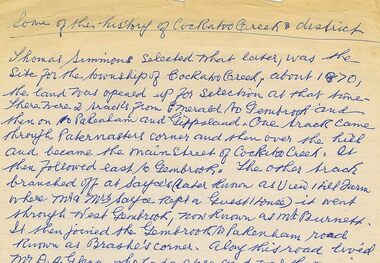 Some of the history of Cockatoo Creek & district
Thomas Simmons selected what later, was the
site for the township of Cockatoo Creek, about 1870,
the land was opened up for selection at that time
There were 2 tracks from Emerald to Gembrook and
then on to Pakenham and Gippsland. One track came
through Paternasters corner and then over the hill
and became the main street of Cockatoo Creek. It
then followed east to Gembrook. The other track
branched off at Sayces (later known as View Hill Farm
where Mr & Mrs Sayce kept a Guest House) it went
through West Gembrook, now known as Mt Burnett.
It then joined the Gembrook to Pakenham road
known as Brashe's corner. Along this road lived
Mr